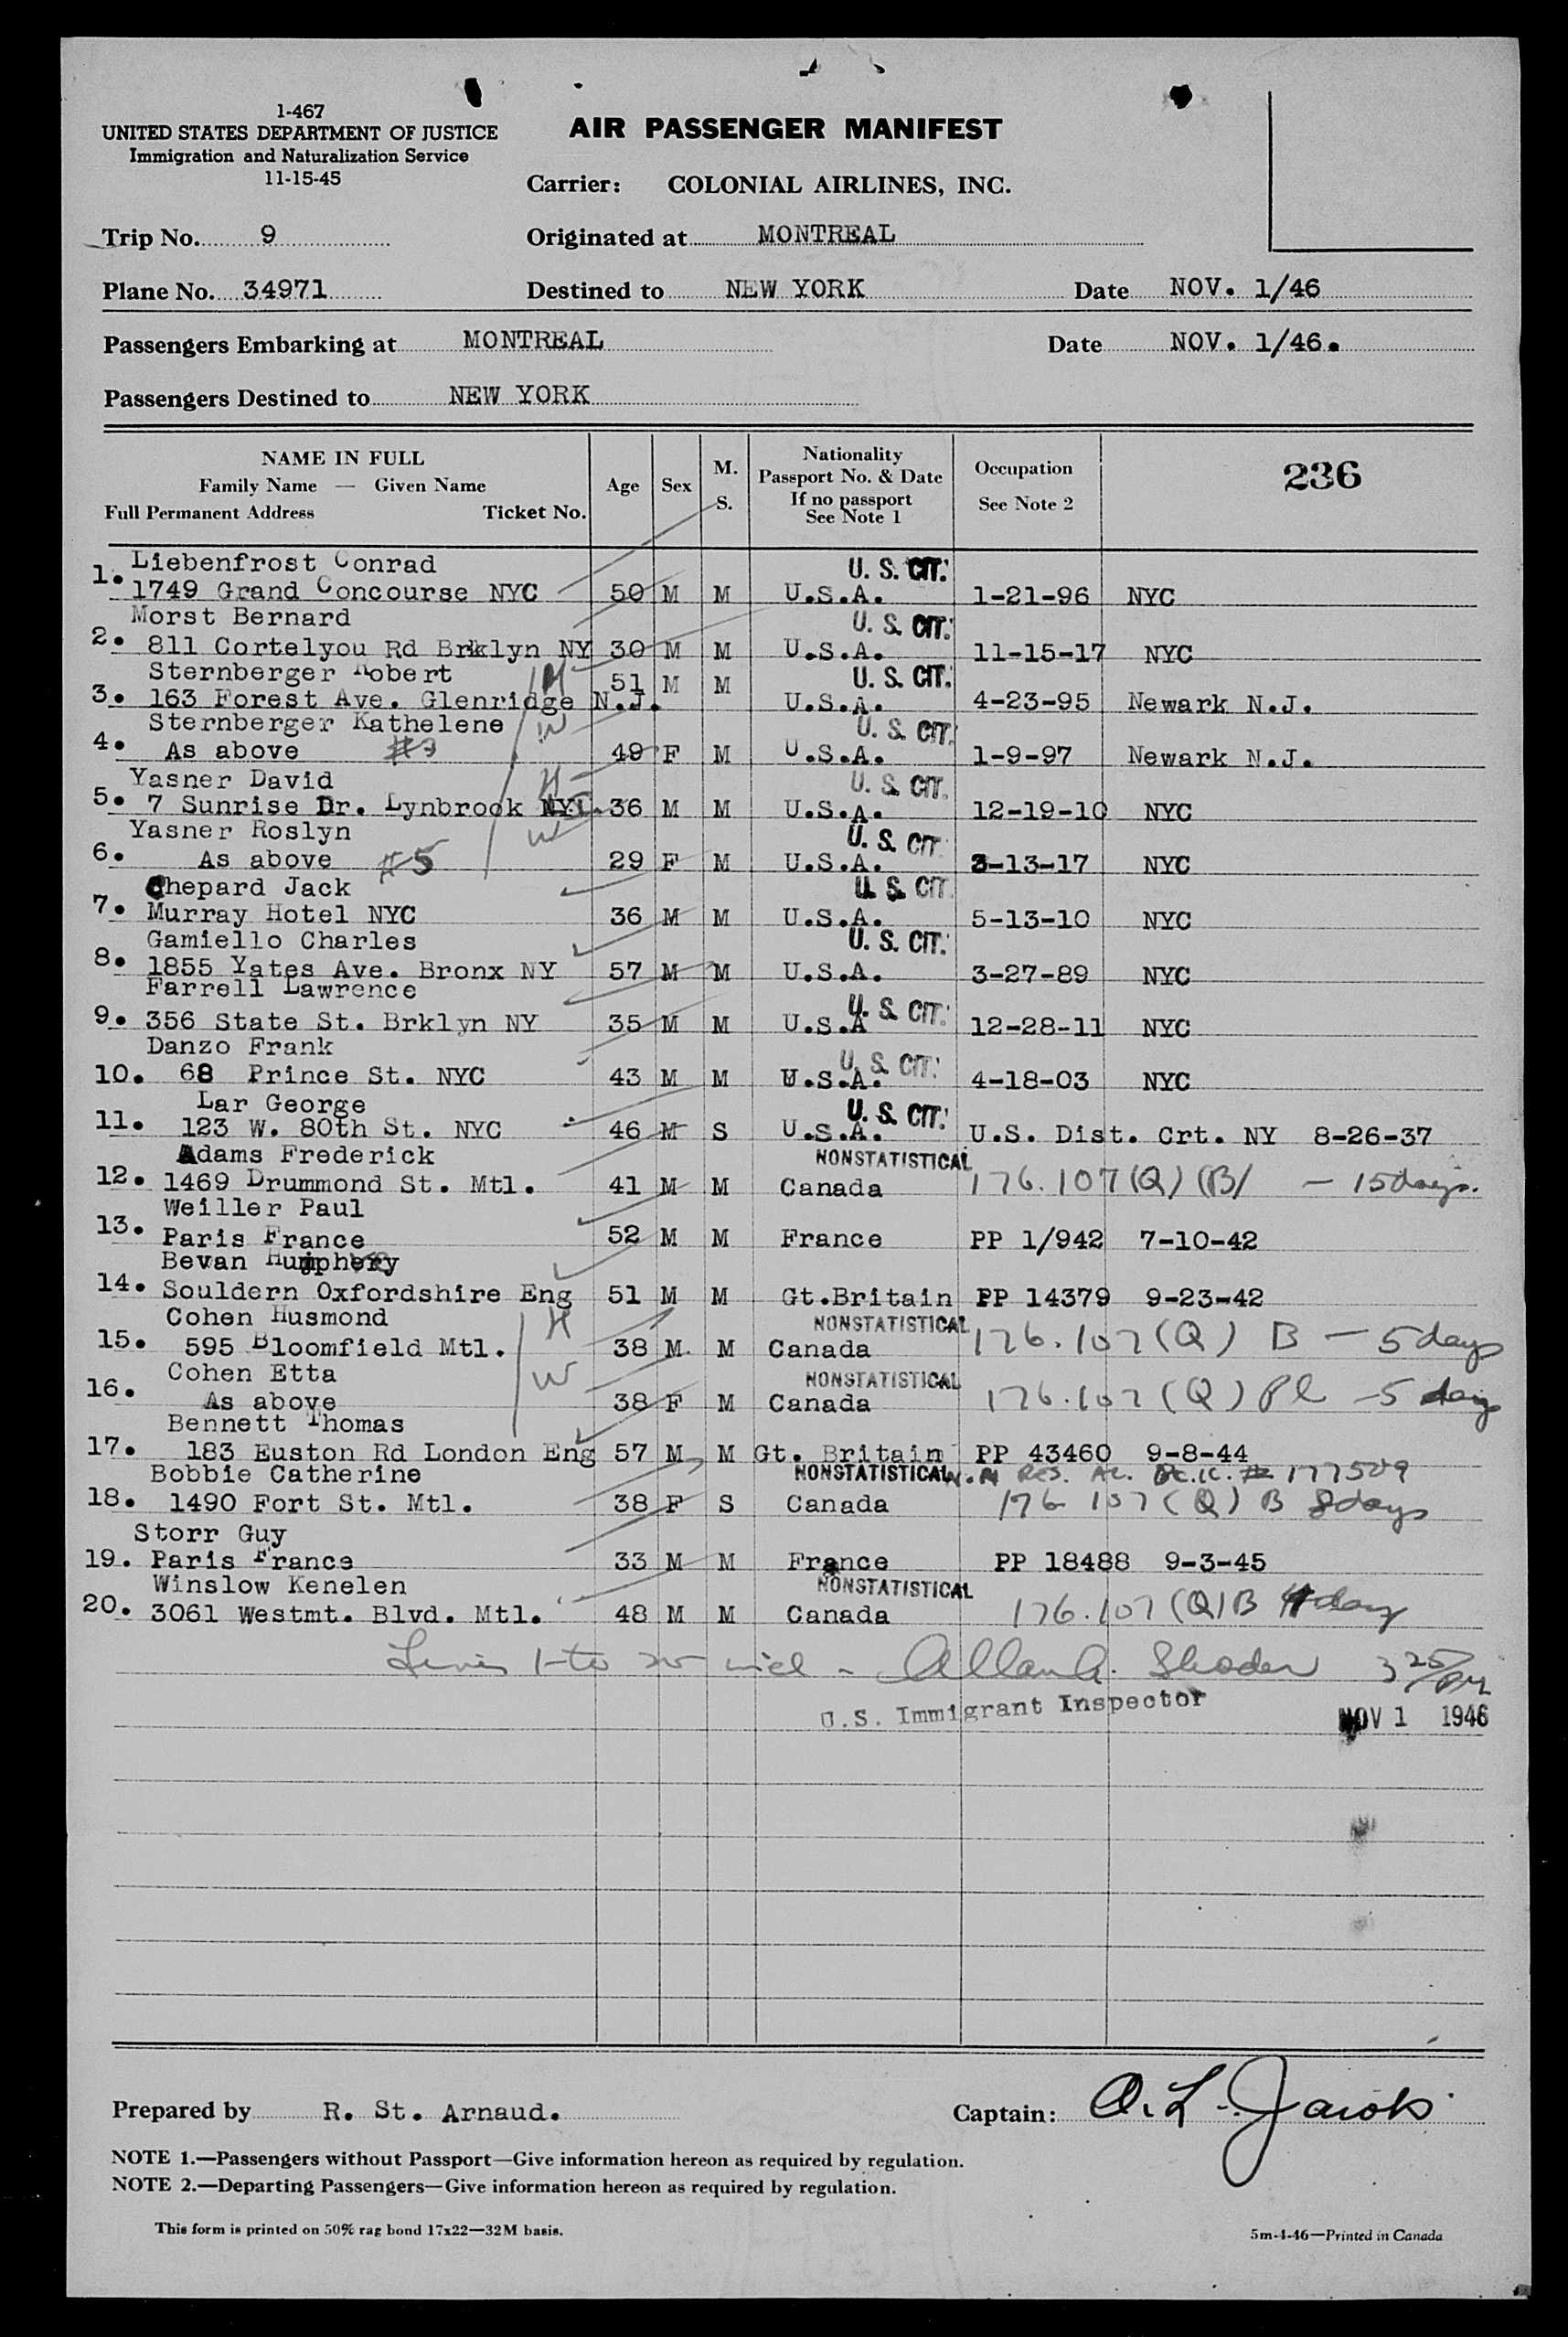 1-467
UNITED STATES DEPARTMENT OF JUSTICE
Immigration and Naturalization Service
11-15-45
AIR PASSENGER MANIFEST
Carrier: COLONIAL AIRLINES, INC.
Trip No. 9 Originated at MONTREAL
Plane No. 34971 Destined to NEW YORK Date NOV. 1/46
Passengers Embarking at MONTREAL Date NOV. 1/46.
Passengers Destined to NEW YORK
NAME IN FULL
Family Name — Given Name
Full Permanent Address Ticket No.
Age
Sex
M.
S.
Nationality
Passport No. & Date
If no passport
See Note 1
Occupation
See Note 2
236
Liebenfrost Conrad U. S. CIT.
1. 1749 Grand Concourse NYC 50 M M U.S.A. 1-21-96 NYC
Morst Bernard U. S. CIT.
2. 811 Cortelyou Rd Brklyn NY 30 M M U.S.A. 11-15-17 NYC
Sternberger Robert H 51 M M U. S. CIT.
3. 163 Forest Ave. Glenridge N.J. U.S.A. 4-23-95 Newark N.J.
Sternberger Kathelene W U. S. CIT.
4. As above #3 49 F M U.S.A. 1-9-97 Newark N.J.
Yasner David H U. S. CIT.
5. 7 Sunrise Dr. Lynbrook 36 M M U.S.A. 12-19-10 NYC
Yasner Roslyn W U. S. CIT
6. As above #5 29 F M U.S.A. 3-13-17 NYC
Chepard Jack U. S. CIT
7. Murray Hotel NYC 36 M M U.S.A. 5-13-10 NYC
Gamiello Charles U. S. CIT.
8. 1855 Yates Ave. Bronx NY 57 M M U.S.A. 3-27-89 NYC
Farrell Lawrence U. S. CIT.
9. 356 State St. Brklyn NY 35 M M U.S.A 12-28-11 NYC
Danzo Frank U. S. CIT.
10. 68 Prince St. NYC 43 M M U.S.A. 4-18-03 NYC
Lar George U. S. CIT.
11. 123 W. 80th St. NYC 46 M S U.S.A. U.S. Dist. Crt. NY 8-26-37
Adams Frederick NONSTATISTICAL
12. 1469 Drummond St. Mtl. 41 M M Canada 176.107(Q) (B/ — 15 days.
Weiller Paul
13. Paris France 52 M M France PP 1/942 7-10-42
Bevan Humphery
14. Souldern Oxfordshire Eng 51 M M Gt.Britain PP 14379 9-23-42
Cohen Husmond H NONSTATISTICAL
15. 595 Bloomfield Mtl. 38 M M Canada 176.107 (Q) B — 5 days
Cohen Etta W NONSTATISTICAL
16. As above 38 F M Canada 176.107 (Q) Pl - 5 days
Bennett Thomas
17. 183 Euston Rd London Eng 57 M M Gt. Britain PP 43460 9-8-44
Bobbie Catherine NONSTATISTICAL RES. 177509
18. 1490 Fort St. Mtl. 38 F S Canada 176 107 (Q) B 8 days
Storr Guy
19. Paris France 33 M M France PP 18488 9-3-45
Winslow Kenelen NONSTATISTICAL
20. 3061 Westmt. Blvd. Mtl. 48 M M Canada 176.107 (Q) B 4 day
Lines 1 to 20 incl - Allan A. 3 25/PM
U.S. Immigrant Inspector NOV 1 1946
Prepared by R. St. Arnaud. Captain: O. L. Jacobs
NOTE 1.—Passengers without Passport—Give information hereon as required by regulation.
NOTE 2.—Departing Passengers—Give information hereon as required by regulation.
This form is printed on 50% rag bond 17x22—32M basis. 5m-4-46—Printed in Canada